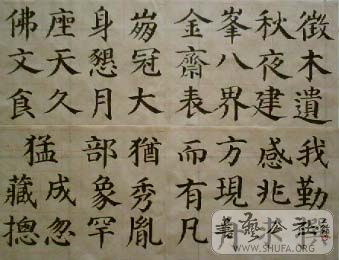 徵木遺我勤
秋夜建感兆
峯八界方現
金齋表而有凡
冠大猶秀胤
身懇月部象罕
座天久成忽
佛文食猛藏摠
WWW.SHUFA.ORG